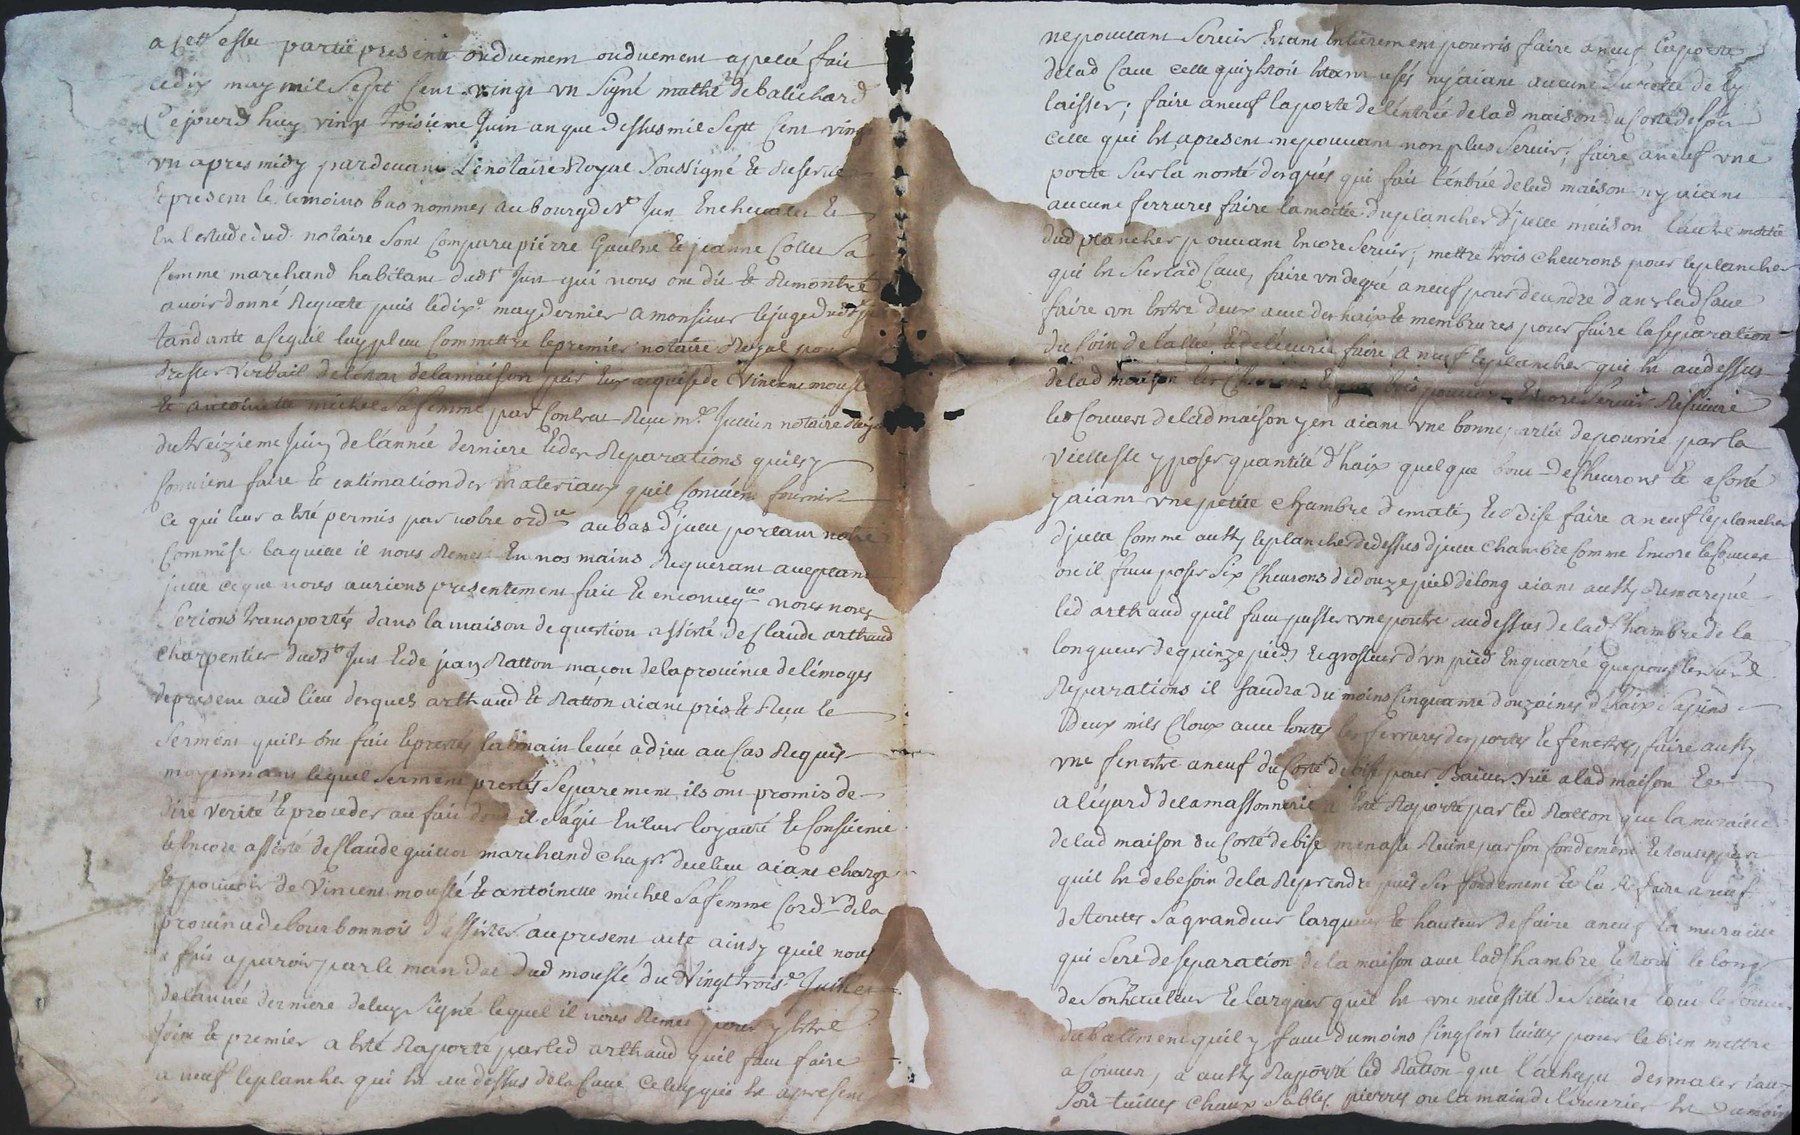 a cett effet partie presente ou duement ou duement appelée fait
ce dix may mil sept cent vingt un signé mathé debalichard
Ce jourd huy vingt troisieme Juin an que dessus mil sept cent vingt
un apres midy pardevant Le notaire Royal soussigné et reservé
et present le temoins bas nommes au bourg de st Jun
en l'estude dud notaire sont comparu pierre Gaulne et jeanne Collu sa
femme marchand habitant dud st Jun qui nous ont dit et Remontré
avoir donné Requete puis le dix may dernier a monsieur le juge dud st Jun
tandante a ce quil luy pleu Commettre le premier notaire Royal pour
dresser verbail de letat de la maison par eux acquise de Vincent mousse
et antoinette michel sa femme par Contrat Reçu me Juin notaire Royal
du treizieme Juin de l'année derniere et des Reparations quil y
convient faire et estimation des materiaux quil convient fournir
ce qui leur a eté permis par notre ordce au bas d'jcelle portant notre
Commise laquelle il nous Remet En nos mains Requerant acceptant
jcelle ce que nous aurions presentement fait et en consequce nous nous
serions transportés dans la maison de question assisté de Claude arthaud
charpentier dud st Jun et de jean Ratton maçon de la province de limoges
de present aud lieu desquels arthaud et Ratton aiant pris et Reçu le
serment quils ont fait et presté la main levée a dieu au cas Requis
moyennant lequel serment prestés separement ils ont promis de
dire verité et proceder au fait dont il s'agit En leur loyauté et Consience
et Encore assisté de Claude guittot marchand chapr dud lieu aiant charge
et pouvoir de Vincent mousse et antoinette michel sa femme Cordr de la
province de bourbonnois d'assister au present acte ainsy quil nous
a fait aparoir par le mandat dud mousse du Vingt trois Juillet
de l'année derniere de luy signé lequel il nous Remet pour y etre
joint et premier a eté Raporté par led arthaud quil faut faire
a neuf le plancher qui est au dessus de la Cave Celuy qui est apresent
ne pouvant servir Etant Entierement pourris faire a neuf la porte
de lad Cave celle qui y etoit etant usés ny aiant aucune surreté de l'y
laisser; faire a neuf la porte de l'entrée de lad maison du Corté de soir
celle qui est apresent ne pouvant non plus servir; faire a neuf une
porte sur la monté des qui fait l'entrée de lad maison ny aiant
aucune ferrures faire la moitié du plancher d'jcelle maison l'autre moitié
dud plancher pouvant Encore servir; mettre trois cheurons pour le plancher
qui est sur lad Cave, faire un degré a neuf pour decendre dans lad Cave
faire un Entre deux avec des haix et membrures pour faire la separation
du foin de l'allée et de l'ecurie faire a neuf le plancher qui est au dessus
de lad maison les Cheurons Encore servir Resuivre
le Couvert de lad maison y en aiant une bonne partie de pourrie par la
vieillesse y poser quantité d'haix quelque bout de Cheurons et a Corté
y aiant une petite chambre et Bise faire a neuf le plancher
d'jcelle Comme aussy le plancher de dessus d'jcelle chambre Comme Encore le Couvert
ou il faut poser six Cheurons de douze pied de long aiant aussy Remarqué
led arthaud quil faut passer une poutre au dessus de lad Chambre de la
longueur de quinze pieds et grosseur d'un pied En quarré que pour les sud
Reparations il faudra du moins Cinquante douzaines d'haix sapins
Deux mils Cloux avec toutes les ferrures des portes et fenetres, faire aussy
une fenetre a neuf du Corté de bise pour Bailler vue a lad maison Et
a l'egard de la massonnerie a eté Raporté par led Ratton que la muraille
de lad maison du Corté de bise menasse Ruine par son fondement
quil est de besoin de la Reprendre puis ses fondement et la Refaire a neuf
de toutes sa grandeur largueur et hauteur de faire a neuf la muraille
qui sert de separation de la maison avec lad Chambre et tout le long
de son hauteur et largeur quil est une nécessité de suivre tout le Couvert
du batiment quil y faut du moins Cinq Cent tuilles pour le bien mettre
a Couvert, a aussy Raporté led Ratton que l'achapt des materiaux
soit tuilles chaux sables, pierres ou la main de l'ouvrier est du moins